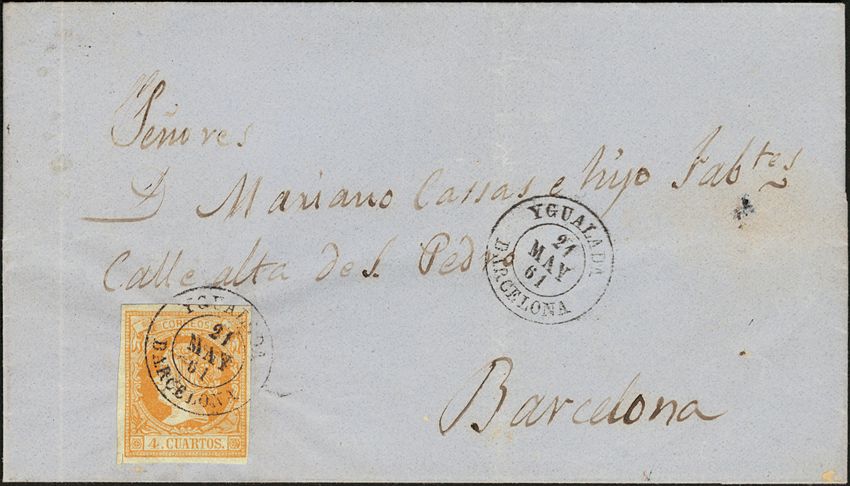 Señores
D Mariano Cassas e hijo Fabtes
Calle alta de S. Pedro
YGUALADA
21
MAY
61
BARCELONA
YGUALADA
21
MAY
61
BARCELONA
CORREOS
4. CUARTOS.
Barcelona